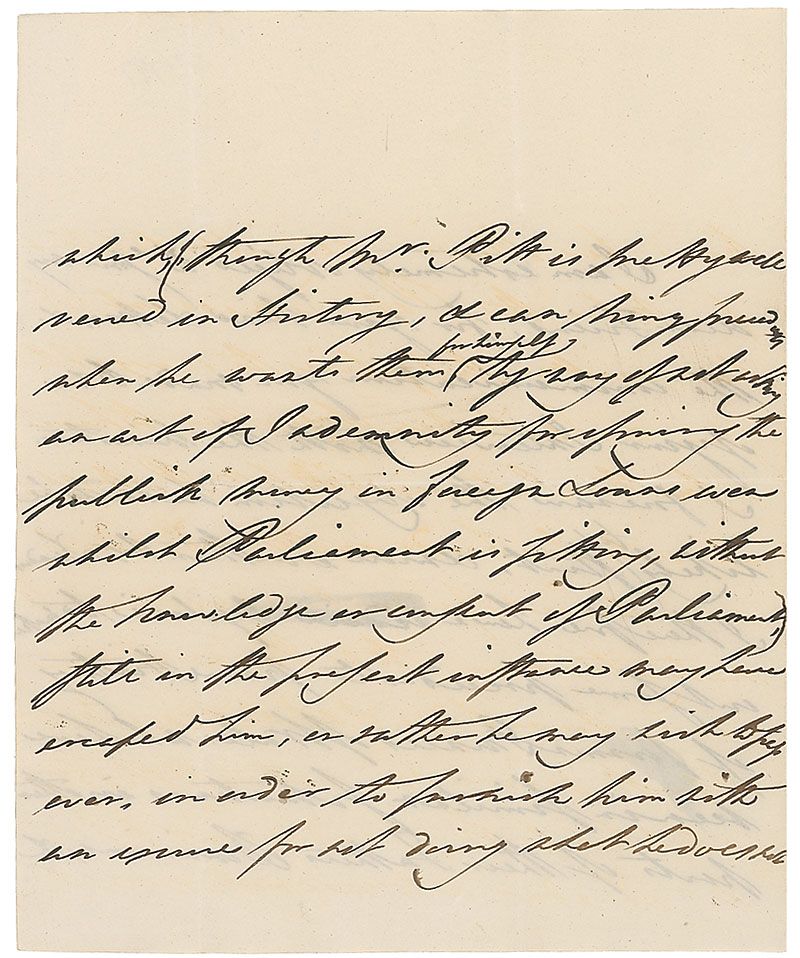 which, (though Mr. Pitt is pretty well
versed in History, & can bring preced
ents
for himself,
when he wants them by way of not asking
an act of Indemnity for issuing the
publick money in foreign Loans even
whilst Parliament is sitting, without
the knowledge or consent of Parliament,)
still in the present instance may have
escaped him, or rather he may wish to
over, in order to furnish him with
an excuse for not doing what he does not